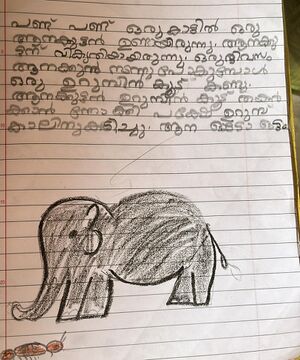 പണ്ട് പണ്ട് ഒരു കാട്ടിൽ ഒരു
ആനക്കുട്ടൻ ഉണ്ടായിരുന്നു. ആനക്കു
ട്ടന് വികൃതിയായിരുന്നു. ഒരു ദിവസം
ആനക്കുട്ടൻ നടന്നു പോകുമ്പോൾ
ഒരു ഉറുമ്പിൻ കൂട് കണ്ടു.
ആനക്കുട്ടൻ ഉറുമ്പിൻ കൂട് തകർ
ക്കാൻ നോക്കി പക്ഷേ ഉറുമ്പ്
കാലിനു കടിച്ചു. ആന